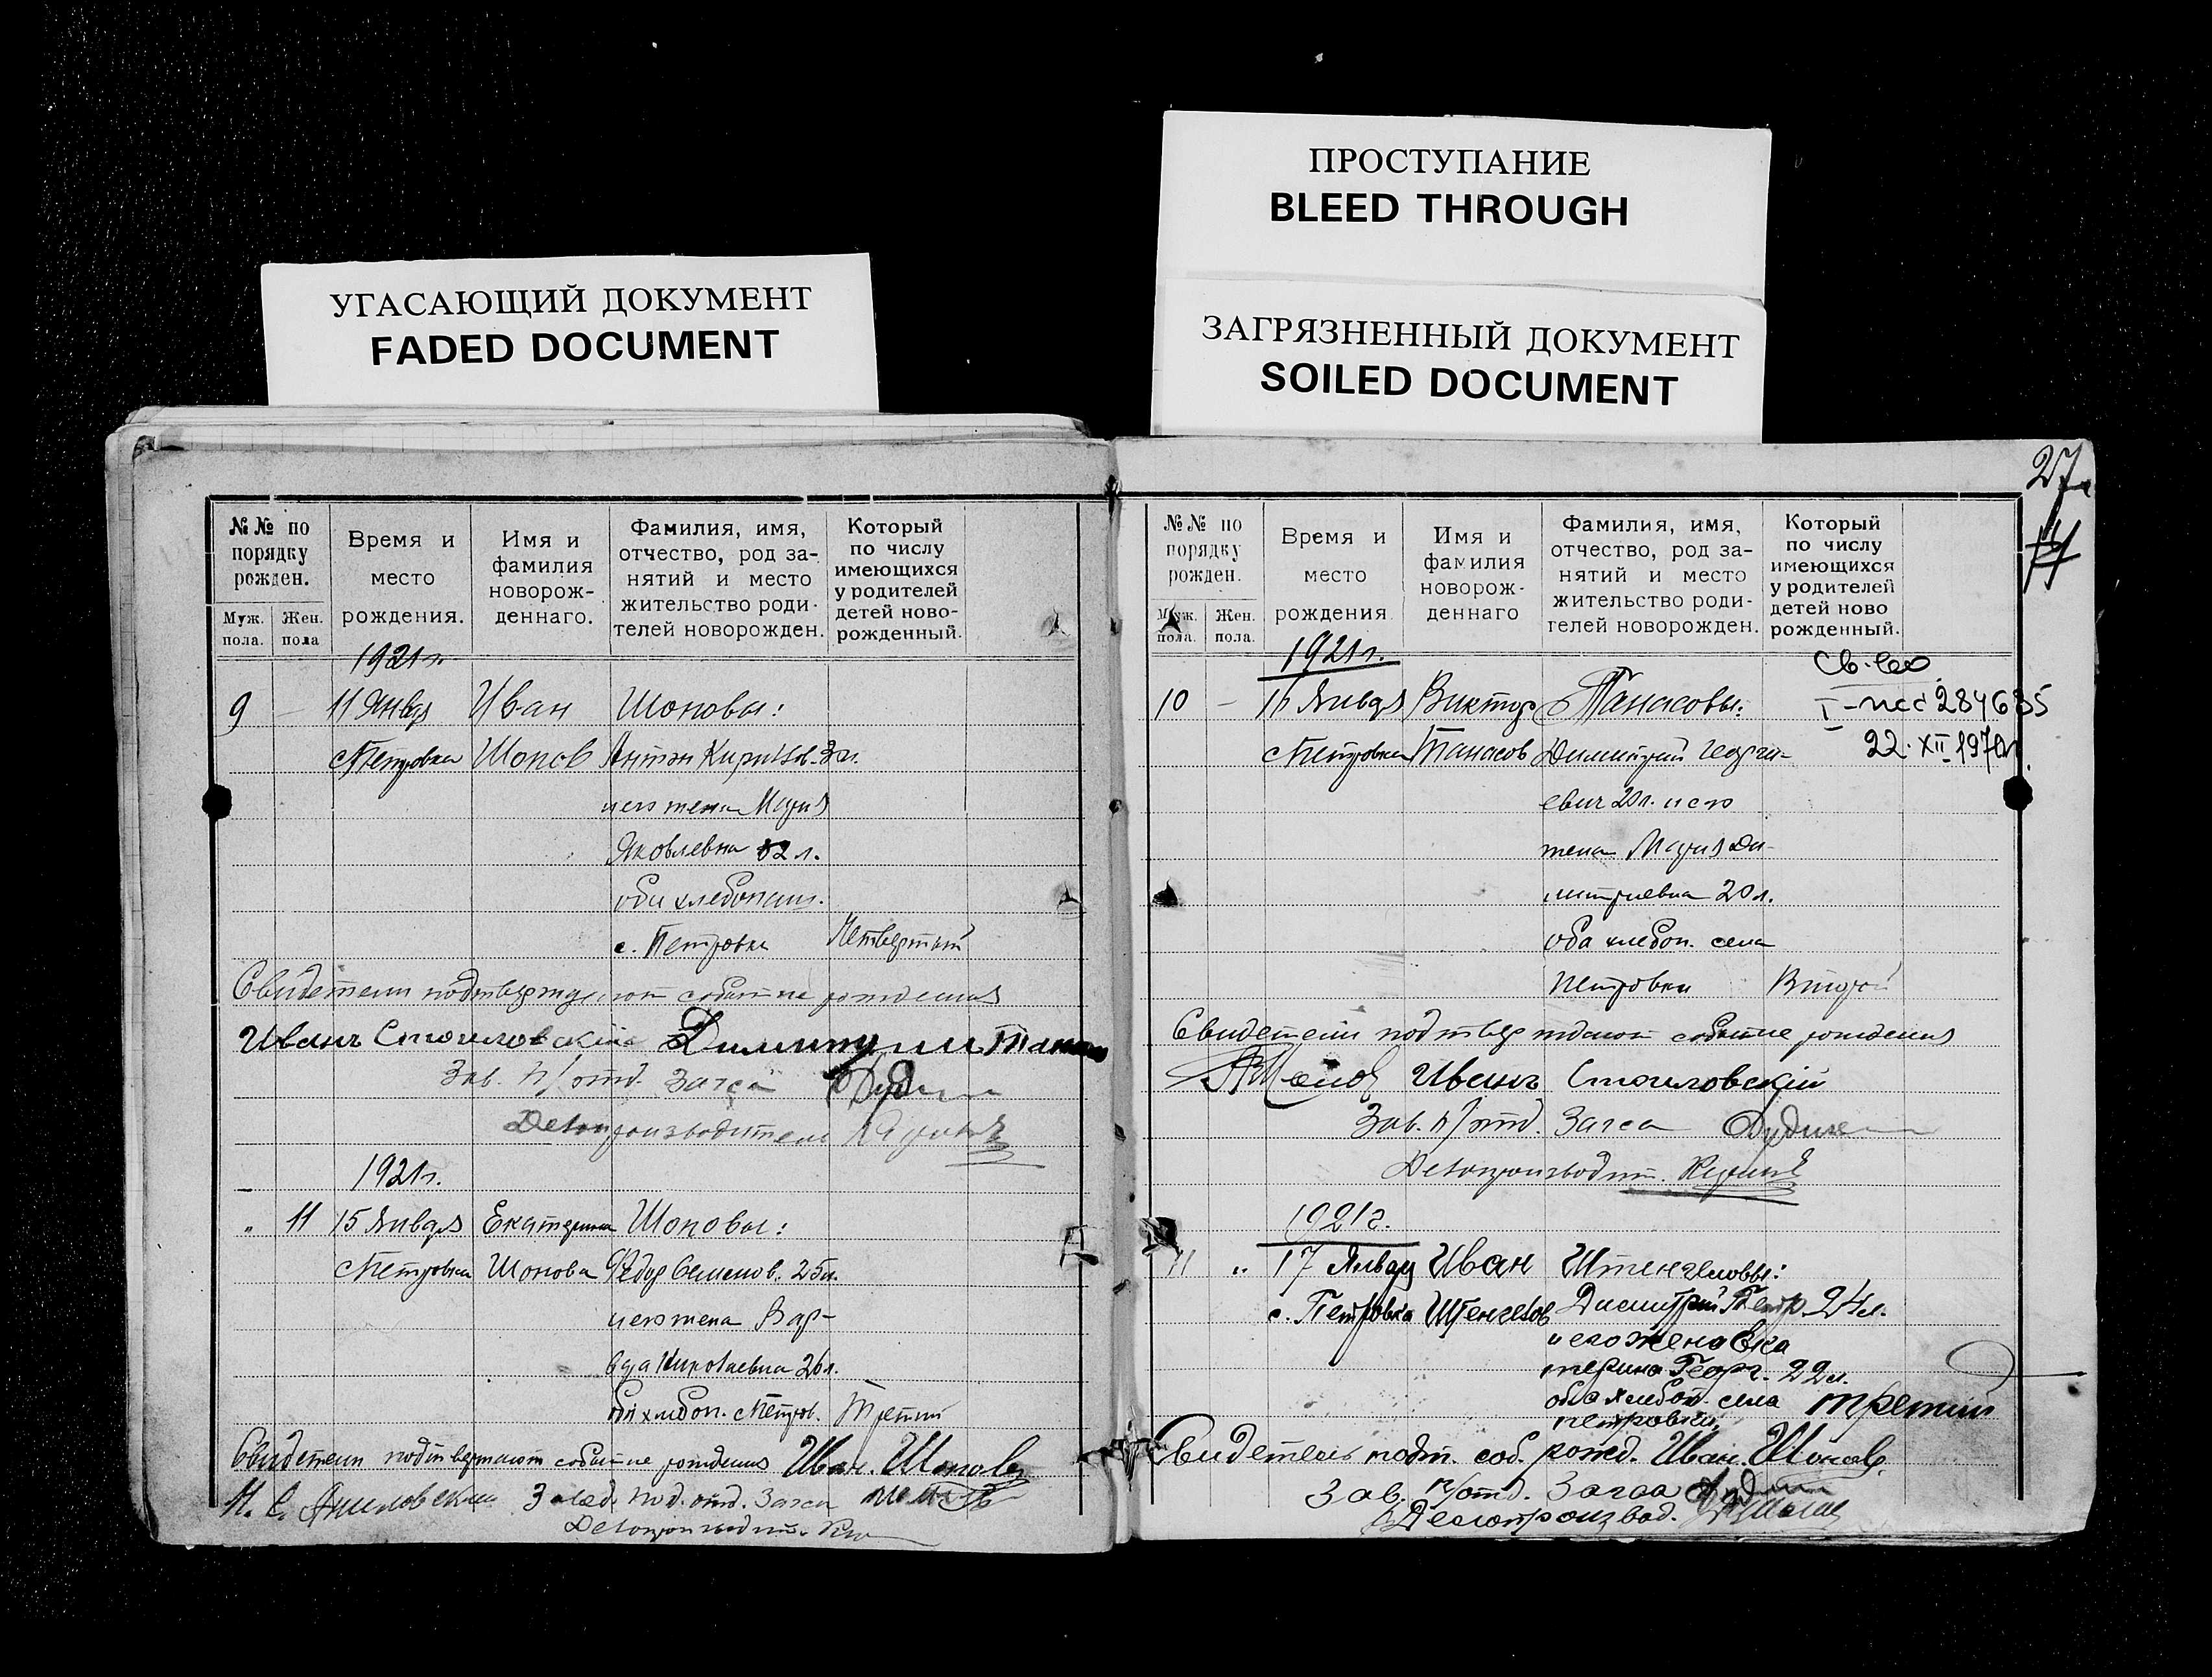 УГАСАЮЩИЙ ДОКУМЕНТ
FADED DOCUMENT
ПРОСТУПАНИЕ
BLEED THROUGH
ЗАГРЯЗНЕННЫЙ ДОКУМЕНТ
SOILED DOCUMENT
№№ по порядку рожден.
Муж. пола.
Жен. пола
Время и место рождения.
Имя и фамилия новорож-деннаго.
Фамилия, имя, отчество, род за-нятий и место жительство роди-телей новорожден.
Который по числу имеющихся у родителей детей ново-рожденный.
1921 г.
9 — 11 Январ Иван Шоповы:
с Петровка Шопов Антон Кирилов.
и его жена Мария
Яковлевна 32 л.
оба хлебопаш.
с. Петровки Четвертый
Свидетели подтверждают событие рождения
Иванъ Стоиловский Димитрий
Зав. п/отд. Загса
Делопроизводитель
1921 г.
" 11 15 Января Екатерина Шоповы:
с Петровка Шопова Федор Семенов. 25 л.
и его жена Вар-
вара 26 л.
оба хлебоп. с Петров. Третий
Свидетели подтверждают событие рождения Иван. Шопов
Завед. под. отд. Загса
Делопроизводит.
27
№№ по порядку рожден.
Муж. пола.
Жен. пола.
Время и место рождения
Имя и фамилия новорож-деннаго
Фамилия, имя, отчество, род за-нятий и место жительство роди-телей новорожден.
Который по числу имеющихся у родителей детей ново рожденный.
1921 г.
Св-во
10 — 16 Января Виктор Танасовы: 284635
с Петровка Танасов Димитрий Георги- 22.XII 1970 г.
евич 20 л. и его
жена Мария Ди-
митриевна 20 л.
оба хлебоп. села
Петровки Второй
Свидетели подтверждают событие рождения
Иванъ Стоиловский
Зав. п/отд. Загса
Делопроизводит.
1921 г.
11 " 17 Январ Иван Штенгеловы:
с. Петровка Штенгелов Дмитрий Петр. 24 л.
и его жена Ека
терина Георг. 22 л.
оба хлебоп. села третий
петровки.
Свидетель подт. соб. рожд. Иван. Шопов.
Зав. п/отд. Загса
Делопроизвод.